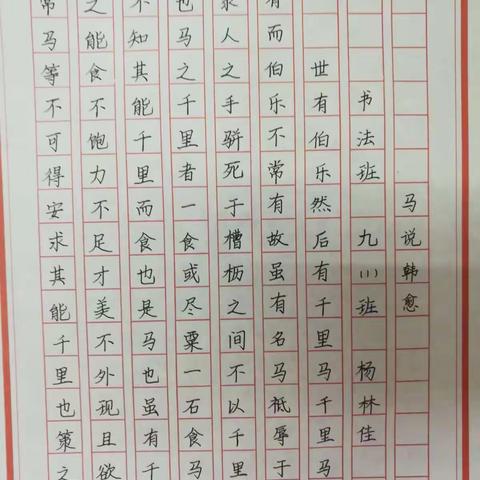 马说韩愈
书法班九(1)班杨林佳
世有伯乐然后有千里马千里马
有而伯乐不常有故虽有名马祗辱于
隶人之手骈死于槽枥之间不以千里
也马之千里者一食或尽粟一石食马
不知其能千里而食也是马也虽有千
之能食不饱力不足才美不外现且欲
常马等不可得安求其能千里也策之